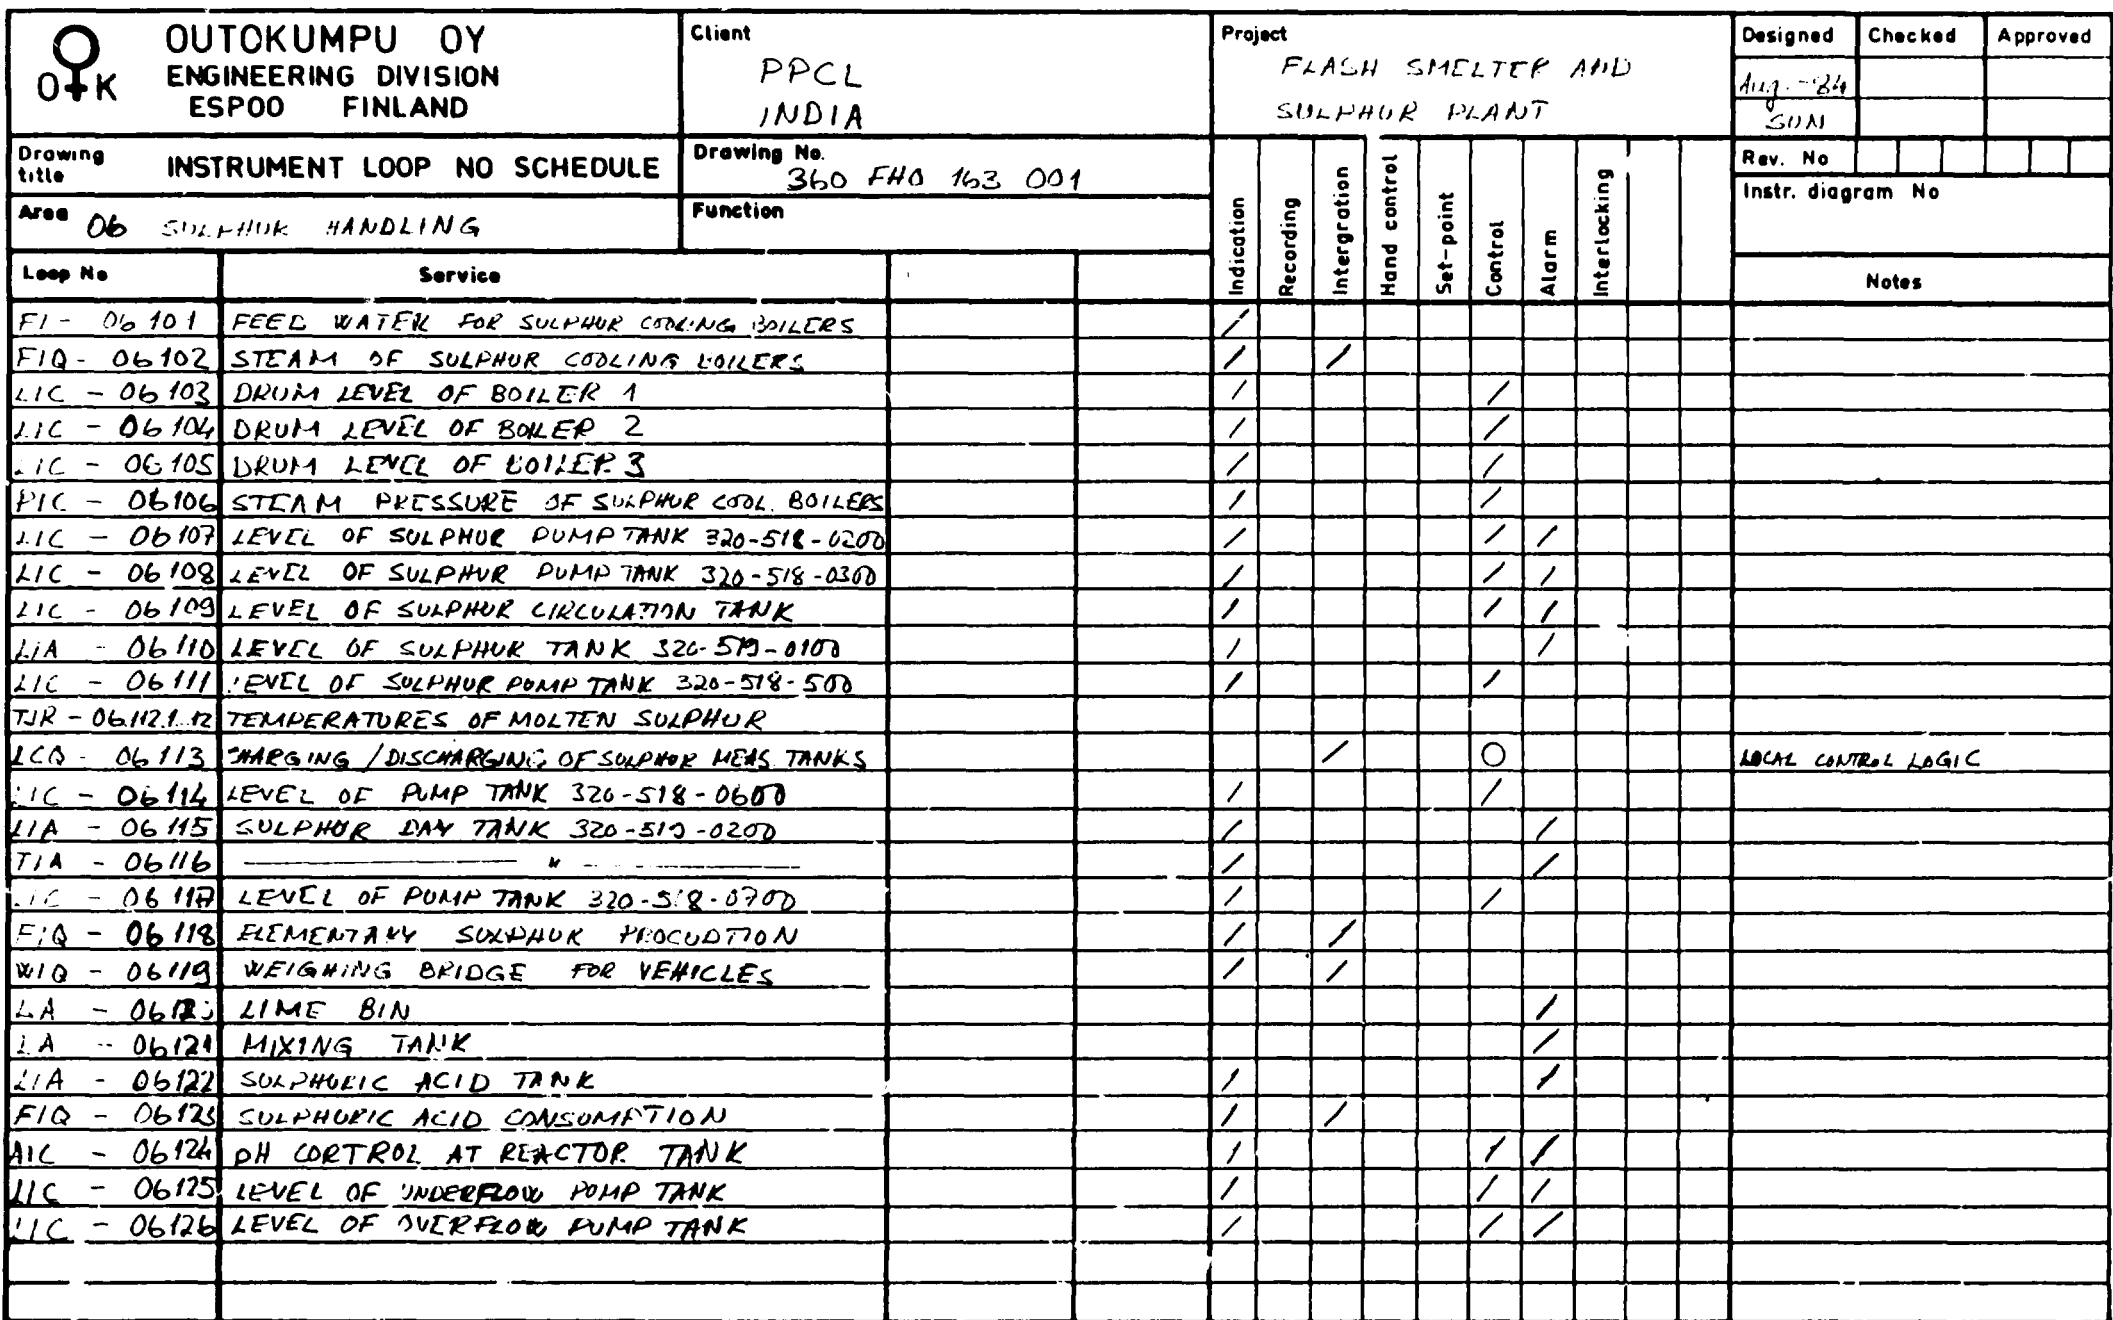 OUTOKUMPU OY
ENGINEERING DIVISION
ESPOO FINLAND
O K
Client
PPCL
INDIA
Project
FLASH SMELTER AND
SULPHUR PLANT
Designed Checked Approved
Aug.-84
SUN
Drawing title INSTRUMENT LOOP NO SCHEDULE
Drawing No.
360 FHO 163 001
Rev. No
Instr. diagram No
Area 06 SULPHUR HANDLING
Function
Indication
Recording
Intergration
Hand control
Set-point
Control
Alarm
Interlocking
Loop No Service Notes
FI - 06101 FEED WATER FOR SULPHUR COOLING BOILERS /
FIQ - 06102 STEAM OF SULPHUR COOLING BOILERS / /
LIC - 06103 DRUM LEVEL OF BOILER 1 / /
LIC - 06104 DRUM LEVEL OF BOILER 2 / /
LIC - 06105 DRUM LEVEL OF BOILER 3 / /
PIC - 06106 STEAM PRESSURE OF SULPHUR COOL. BOILERS / /
LIC - 06107 LEVEL OF SULPHUR PUMP TANK 320-518-0200 / / /
LIC - 06108 LEVEL OF SULPHUR PUMP TANK 320-518-0300 / / /
LIC - 06109 LEVEL OF SULPHUR CIRCULATION TANK / / /
LIA - 06110 LEVEL OF SULPHUR TANK 320-519-0100 / /
LIC - 06111 LEVEL OF SULPHUR PUMP TANK 320-518-500 / /
TJR - 06112.1..12 TEMPERATURES OF MOLTEN SULPHUR
LCQ - 06113 CHARGING / DISCHARGING OF SULPHUR MEAS. TANKS / O LOCAL CONTROL LOGIC
LIC - 06114 LEVEL OF PUMP TANK 320-518-0600 / /
LIA - 06115 SULPHUR DAY TANK 320-519-0200 / /
TIA - 06116 — " — / /
LIC - 06117 LEVEL OF PUMP TANK 320-518-0700 / /
FIQ - 06118 ELEMENTARY SULPHUR PROCUDTION / /
WIQ - 06119 WEIGHING BRIDGE FOR VEHICLES / /
LA - LIME BIN /
LA - 06121 MIXING TANK /
LIA - 06122 SULPHURIC ACID TANK / /
FIQ - 06123 SULPHURIC ACID CONSUMPTION / /
AIC - 06124 pH CORTROL AT REACTOR TANK / / /
LIC - 06125 LEVEL OF UNDERFLOW PUMP TANK / / /
LIC - 06126 LEVEL OF OVERFLOW PUMP TANK / / /